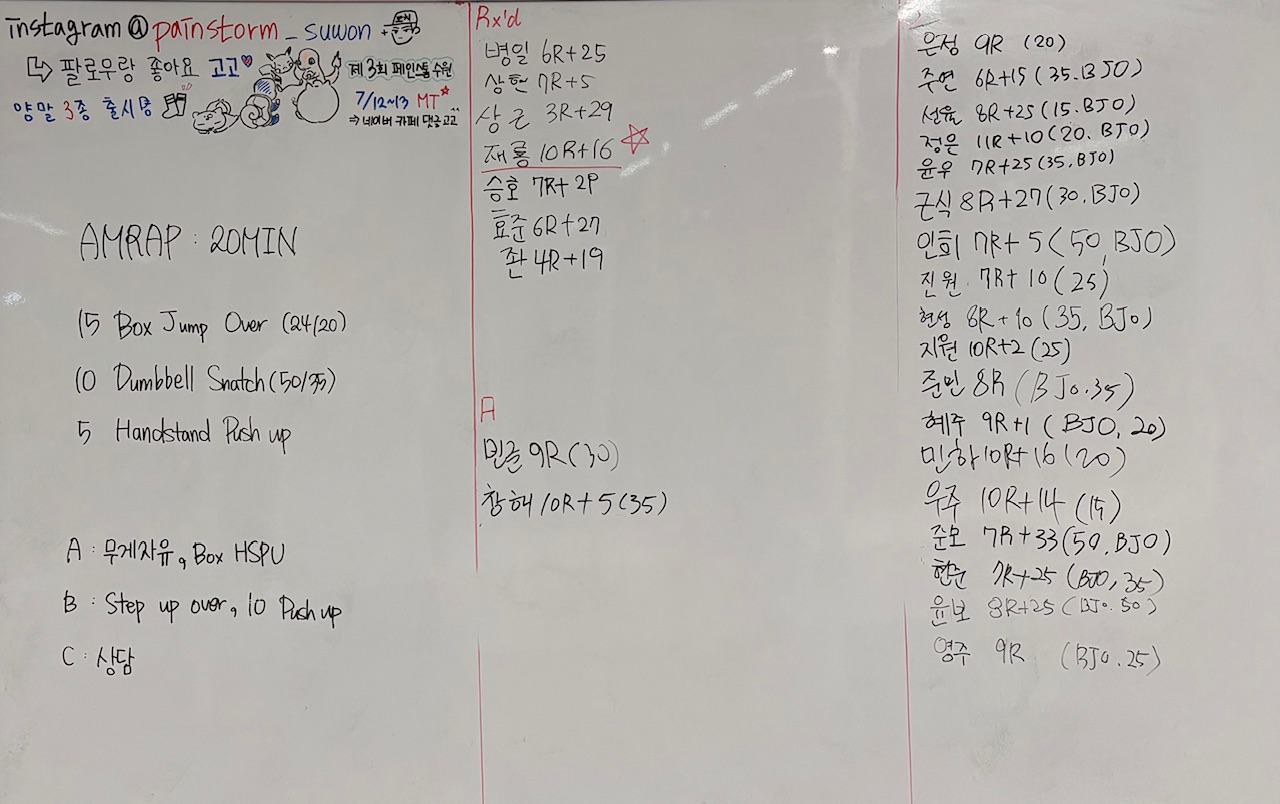 instagram@painstorm_suwon
팔로우랑 좋아요 고고
양말 3종 출시중
제 3회 페인스톰 수원
7/12~13 MT
⇒ 네이버 카페 댓글고고
AMRAP : 20MIN
15 Box Jump Over (24/20)
10 Dumbbell Snatch (50/35)
5 Handstand Push up
A : 무게자유, Box HSPU
B : Step up over, 10 Push up
C : 상담
Rx'd
병일 6R+25
상현 7R+5
상근 3R+29
재룡 10R+16
승호 7R+29
효준 6R+27
좐 4R+19
A
민준 9R (30)
창해 10R+5 (35)
은정 9R (20)
주연 6R+15 (35. BJO)
선율 8R+25 (15. BJO)
정은 11R+10 (20. BJO)
윤우 7R+25 (35. BJO)
근식 8R+27 (30. BJO)
인희 7R+5 (50, BJO)
진원 7R+10 (25)
현성 8R+10 (35, BJO)
지원 10R+2 (25)
준민 8R (BJO. 35)
혜주 9R+1 (BJO, 20)
민하 10R+16 (20)
우주 10R+14 (15)
준모 7R+33 (50, BJO)
현준 7R+25 (BJO, 35)
윤보 8R+25 (BJO. 50)
영주 9R (BJO. 25)